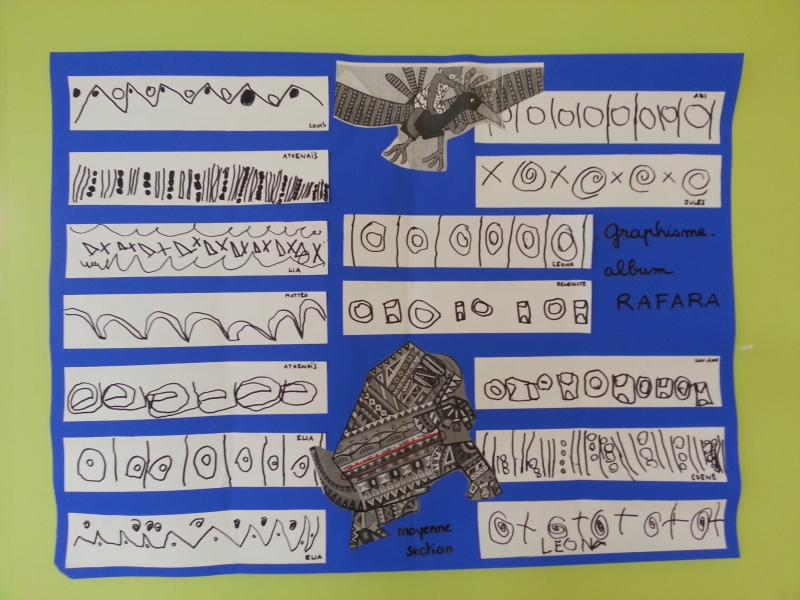 LOUIS
ATHENAÏS
LIA
MATTEO
ATHENAÏS
ELIA
ELIA
ADI
JULES
LEONA
BENEDICTE
Graphisme.
album
RAFARA
EDENE
LEONA
moyenne
section